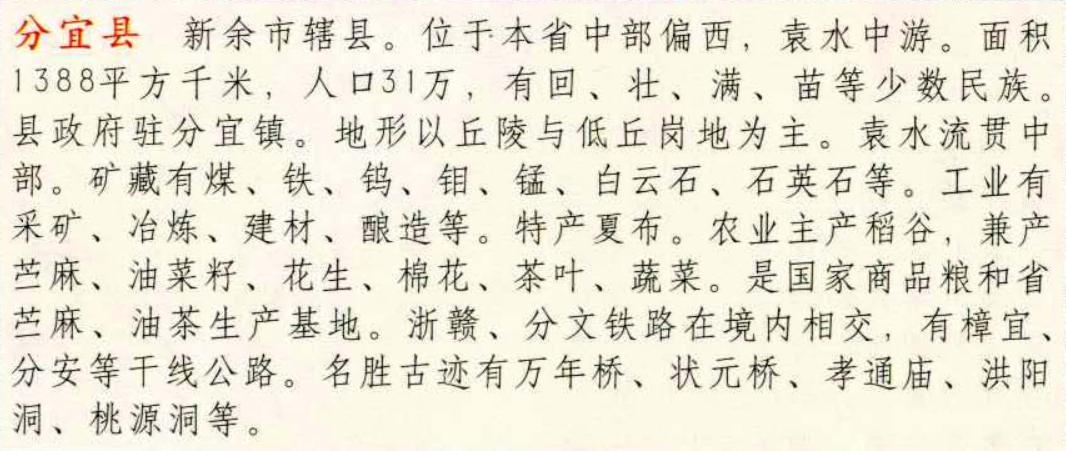 分宜县 新余市辖县。位于本省中部偏西，袁水中游。面积
1388平方千米，人口31万，有回、壮、满、苗等少数民族。
县政府驻分宜镇。地形以丘陵与低丘岗地为主。袁水流贯中
部。矿藏有煤、铁、钨、钼、锰、白云石、石英石等。工业有
采矿、冶炼、建材、酿造等。特产夏布。农业主产稻谷，兼产
苎麻、油菜籽、花生、棉花、茶叶、蔬菜。是国家商品粮和省
苎麻、油茶生产基地。浙赣、分文铁路在境内相交，有樟宜、
分安等干线公路。名胜古迹有万年桥、状元桥、孝通庙、洪阳
洞、桃源洞等。